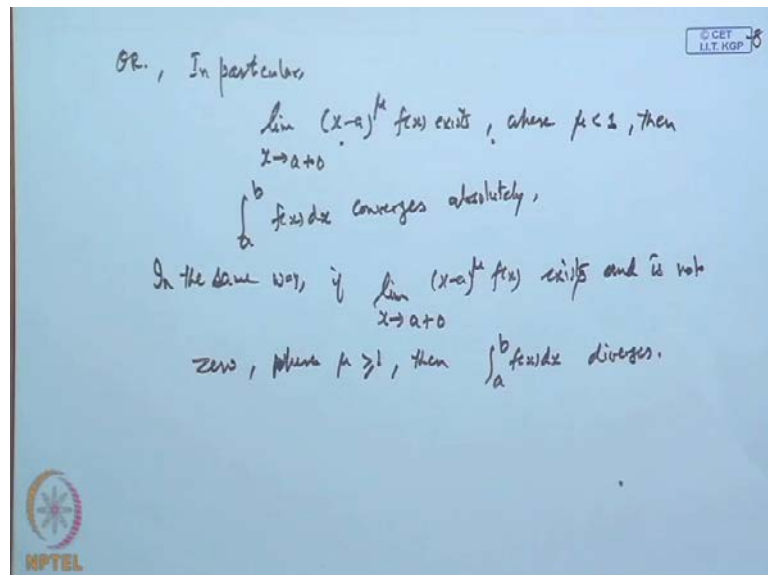 © CET
I.I.T. KGP
OR., In particular,
lim (x-a)^μ f(x) exists, where μ < 1, then
x→a+0
∫_a^b f(x)dx converges absolutely,
In the same way, if lim (x-a)^μ f(x) exists and is not
x→a+0
zero, where μ ≥ 1, then ∫_a^b f(x)dx diverges.
NPTEL